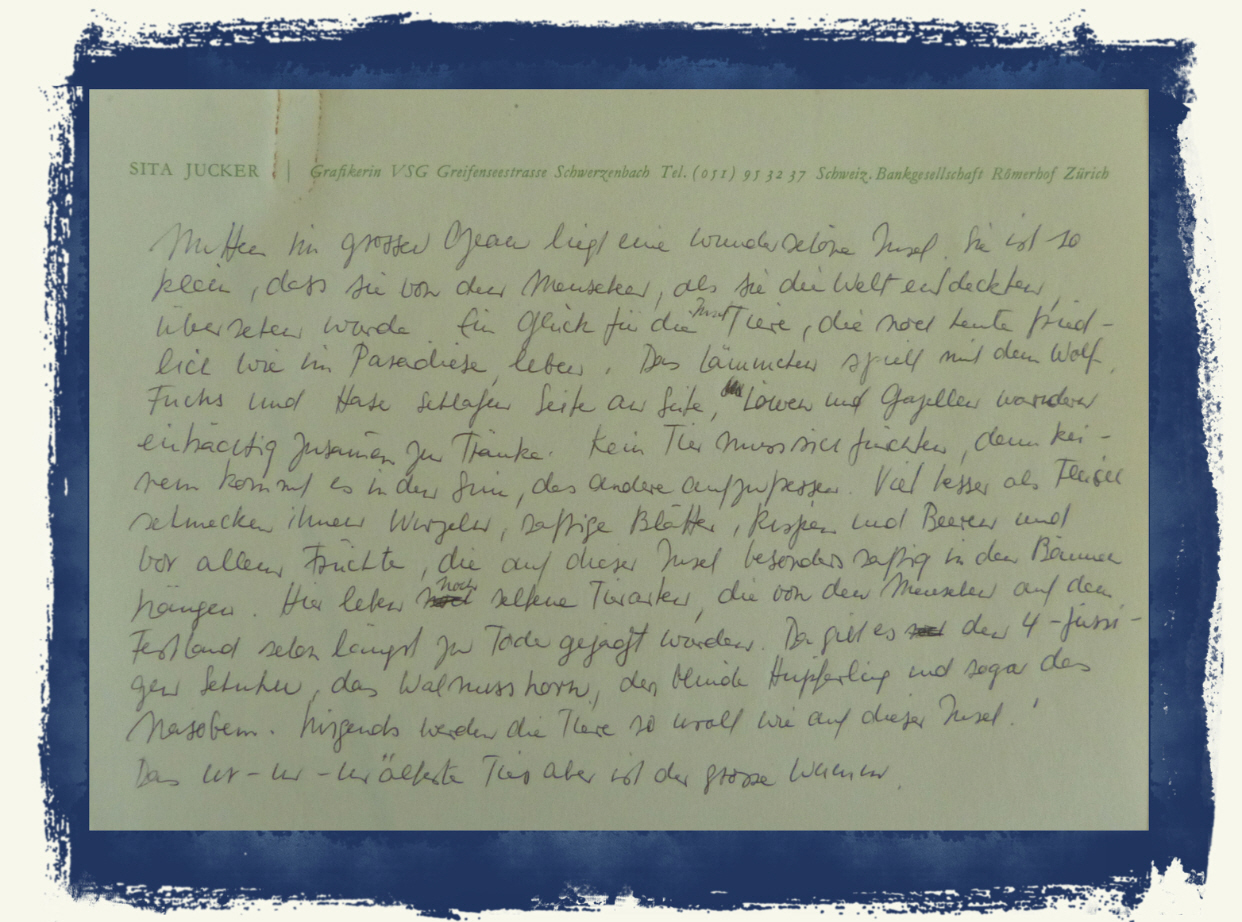 SITA JUCKER | Grafikerin VSG Greifenseestrasse Schwerzenbach Tel. (051) 95 32 37 Schweiz. Bankgesellschaft Römerhof Zürich
Mitten im grossen Ozean liegt eine wunderschöne Insel. Sie ist so
klein, dass sie von den Menschen, als sie die Welt entdeckten,
übersehen wurde. Ein Glück für die Insel Tiere, die noch heute fried-
lich wie im Paradiese leben. Das Lämmchen spielt mit dem Wolf,
Fuchs und Hase schlafen Seite an Seite, Löwen und Gazellen wandern
einträchtig zusammen zur Tränke. Kein Tier muss sich fürchten, denn kei-
nem kommt es in den Sinn, das andere aufzufressen. Viel besser als Fleisch
schmecken ihnen Wurzeln, saftige Blätter, Rispen und Beeren und
vor allem Früchte, die auf dieser Insel besonders saftig in den Bäumen
hängen. Hier leben noch seltene Tierarten, die von den Menschen auf dem
Festland schon längst zu Tode gejagt wurden. Da gibt es den 4-füssi-
gen Schuhu, das Walnusshorn, den blinde Hüpferling und sogar das
Nasobem. Nirgends werden die Tiere so uralt wie auf dieser Insel.
Das ur-ur-urälteste Tier aber ist der grosse